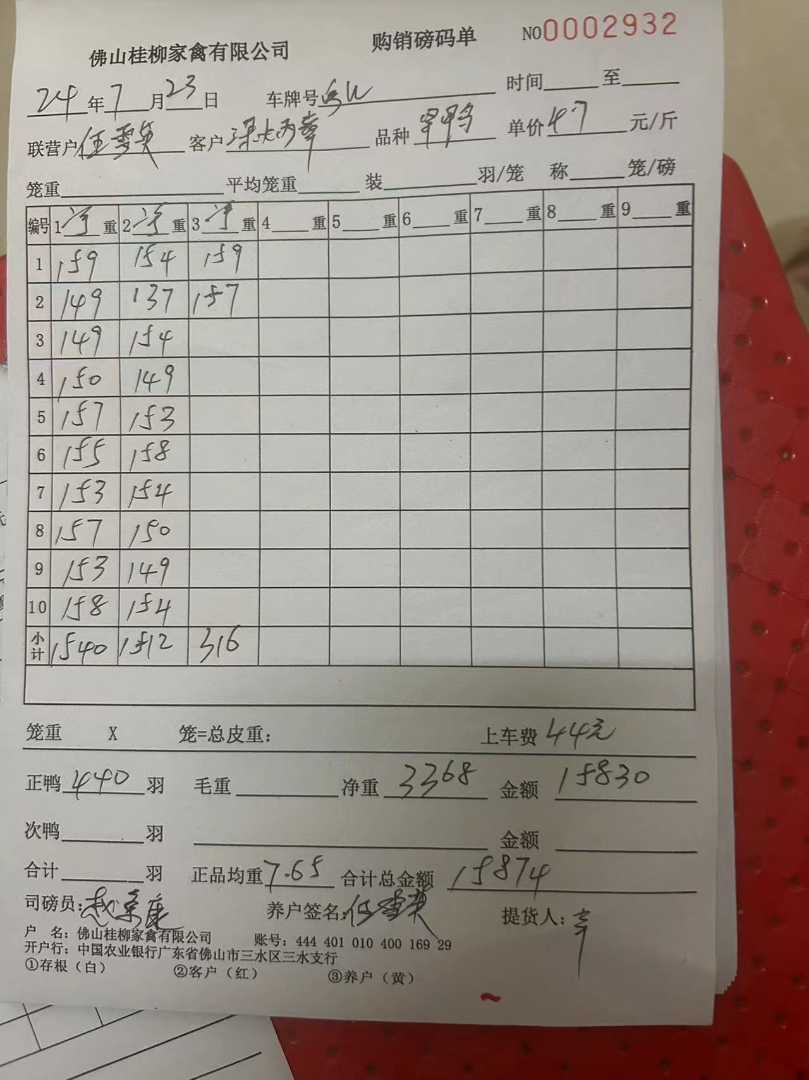 佛山桂柳家禽有限公司 购销磅码单 NO0002932
24年7月23日 车牌号 时间 至
联营户任雪英 客户 品种 单价4.7元/斤
笼重 平均笼重 装 羽/笼 称 笼/磅
编号 1净重 2净重 3净重 4 重 5 重 6 重 7 重 8 重 9 重
1 159 154 159
2 149 137 157
3 149 154
4 150 149
5 157 153
6 155 158
7 153 154
8 157 150
9 153 149
10 158 154
小计 1540 1512 316
笼重 X 笼=总皮重: 上车费 44元
正鸭440羽 毛重 净重3368 金额15830
次鸭 羽 金额
合计 羽 正品均重7.65 合计总金额15874
司磅员: 养户签名:任雪英 提货人:
户 名: 佛山桂柳家禽有限公司 账号: 444 401 010 400 169 29
开户行: 中国农业银行广东省佛山市三水区三水支行
①存根（白） ②客户（红） ③养户（黄）